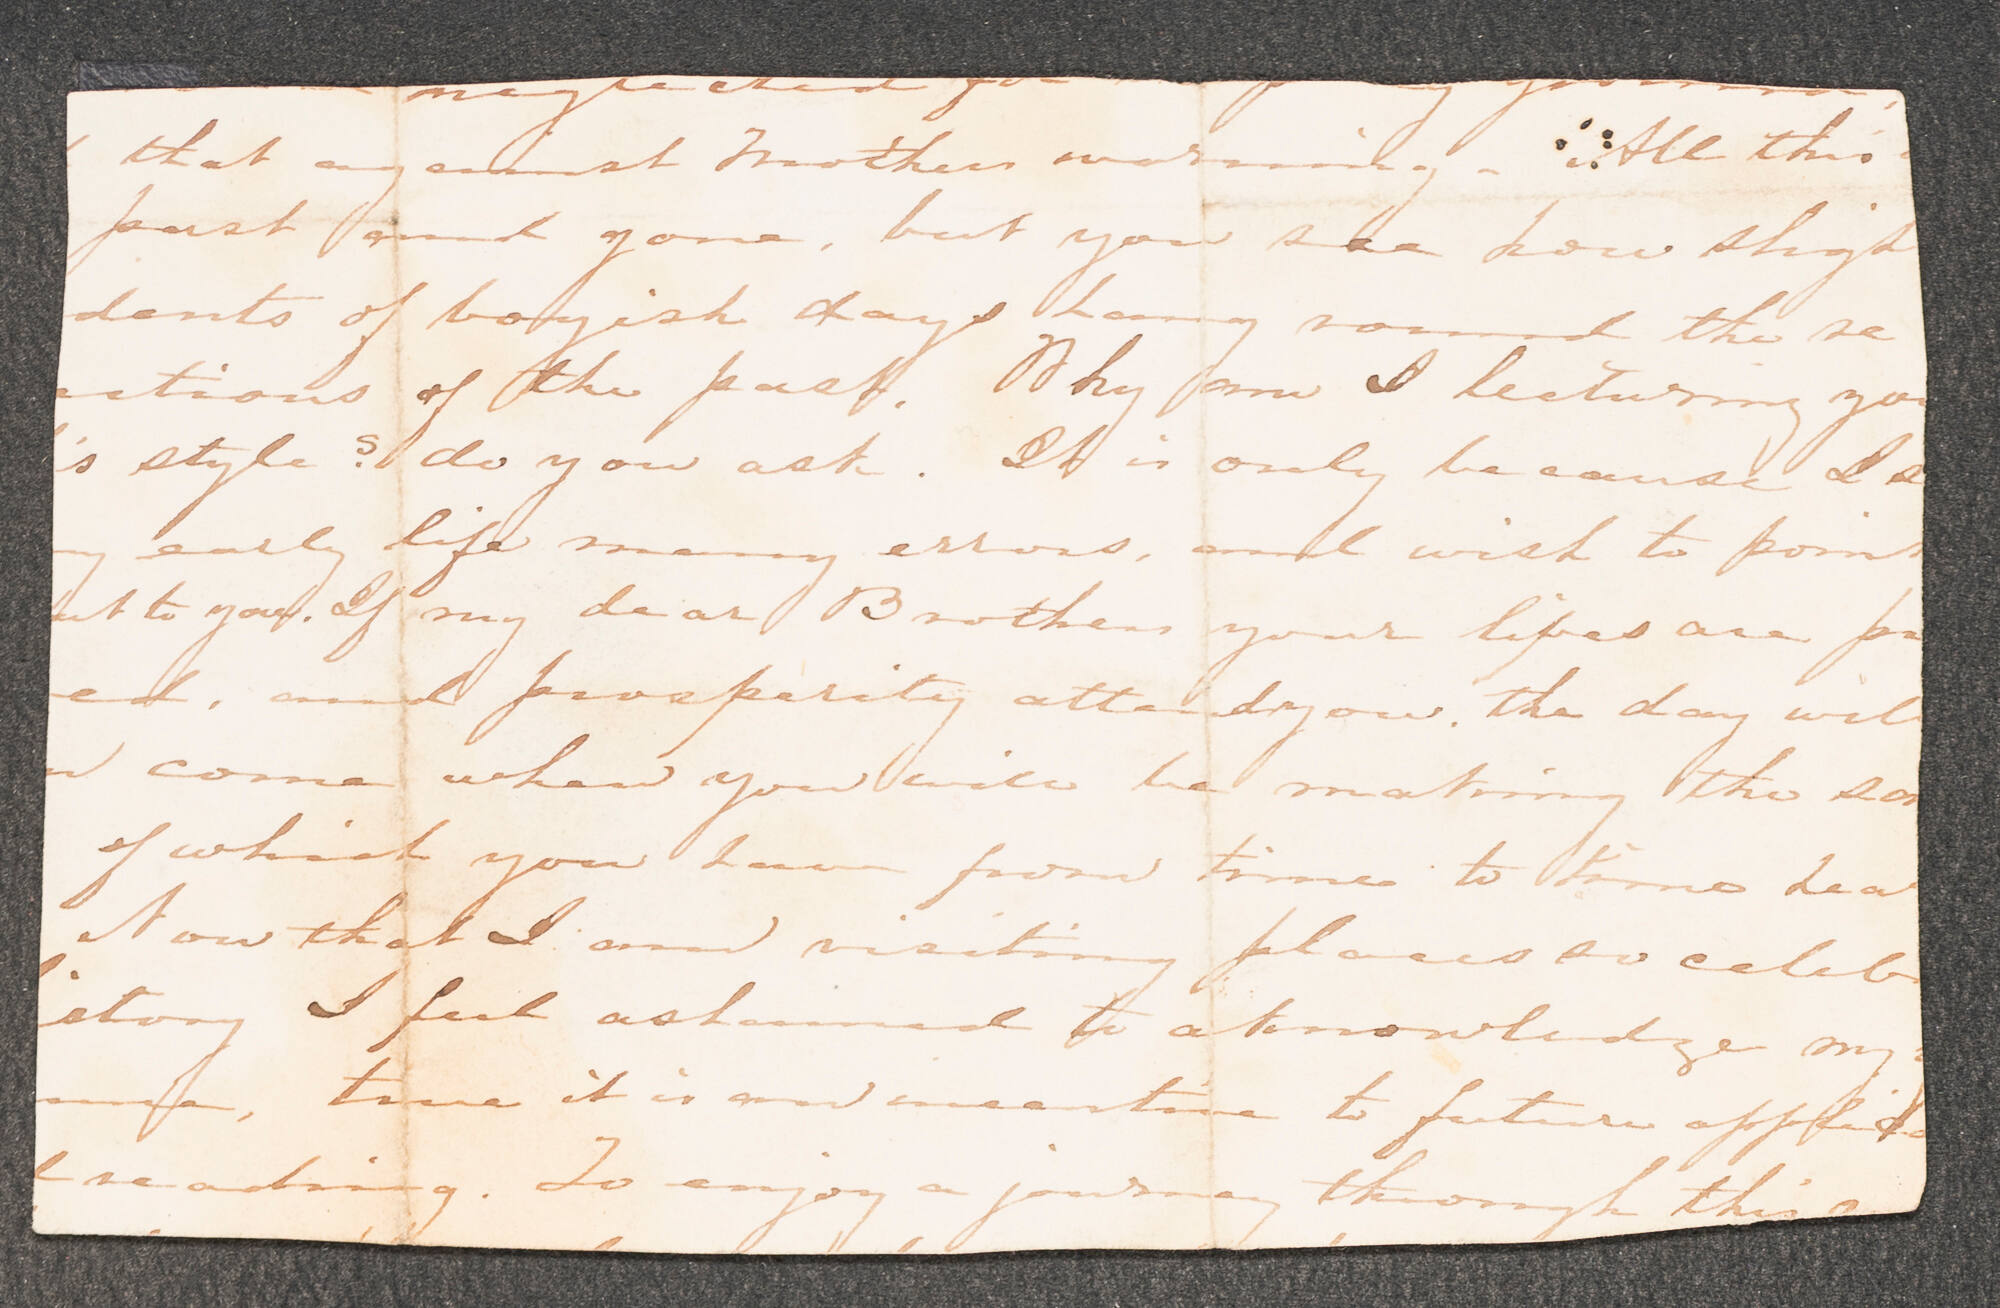 neglected for my
that against Mothers warning. All this
past and gone, but you see how sligh
dents of boyish days hang round the re
ctions of the past. Why am I lecturing you
is style? do you ask. It is only because I s
y early life many errors, and wish to poin
ut to you. If my dear Brothers your lifes are pr
ed, and prosperity attend you. the day will
come when you will be making the sam
of which you have from time to time hear
Now that I am visiting places so celebr
istory I feel ashamed to aknowledge my
true it is an incentive to future appli
reading. To enjoy a journey through this